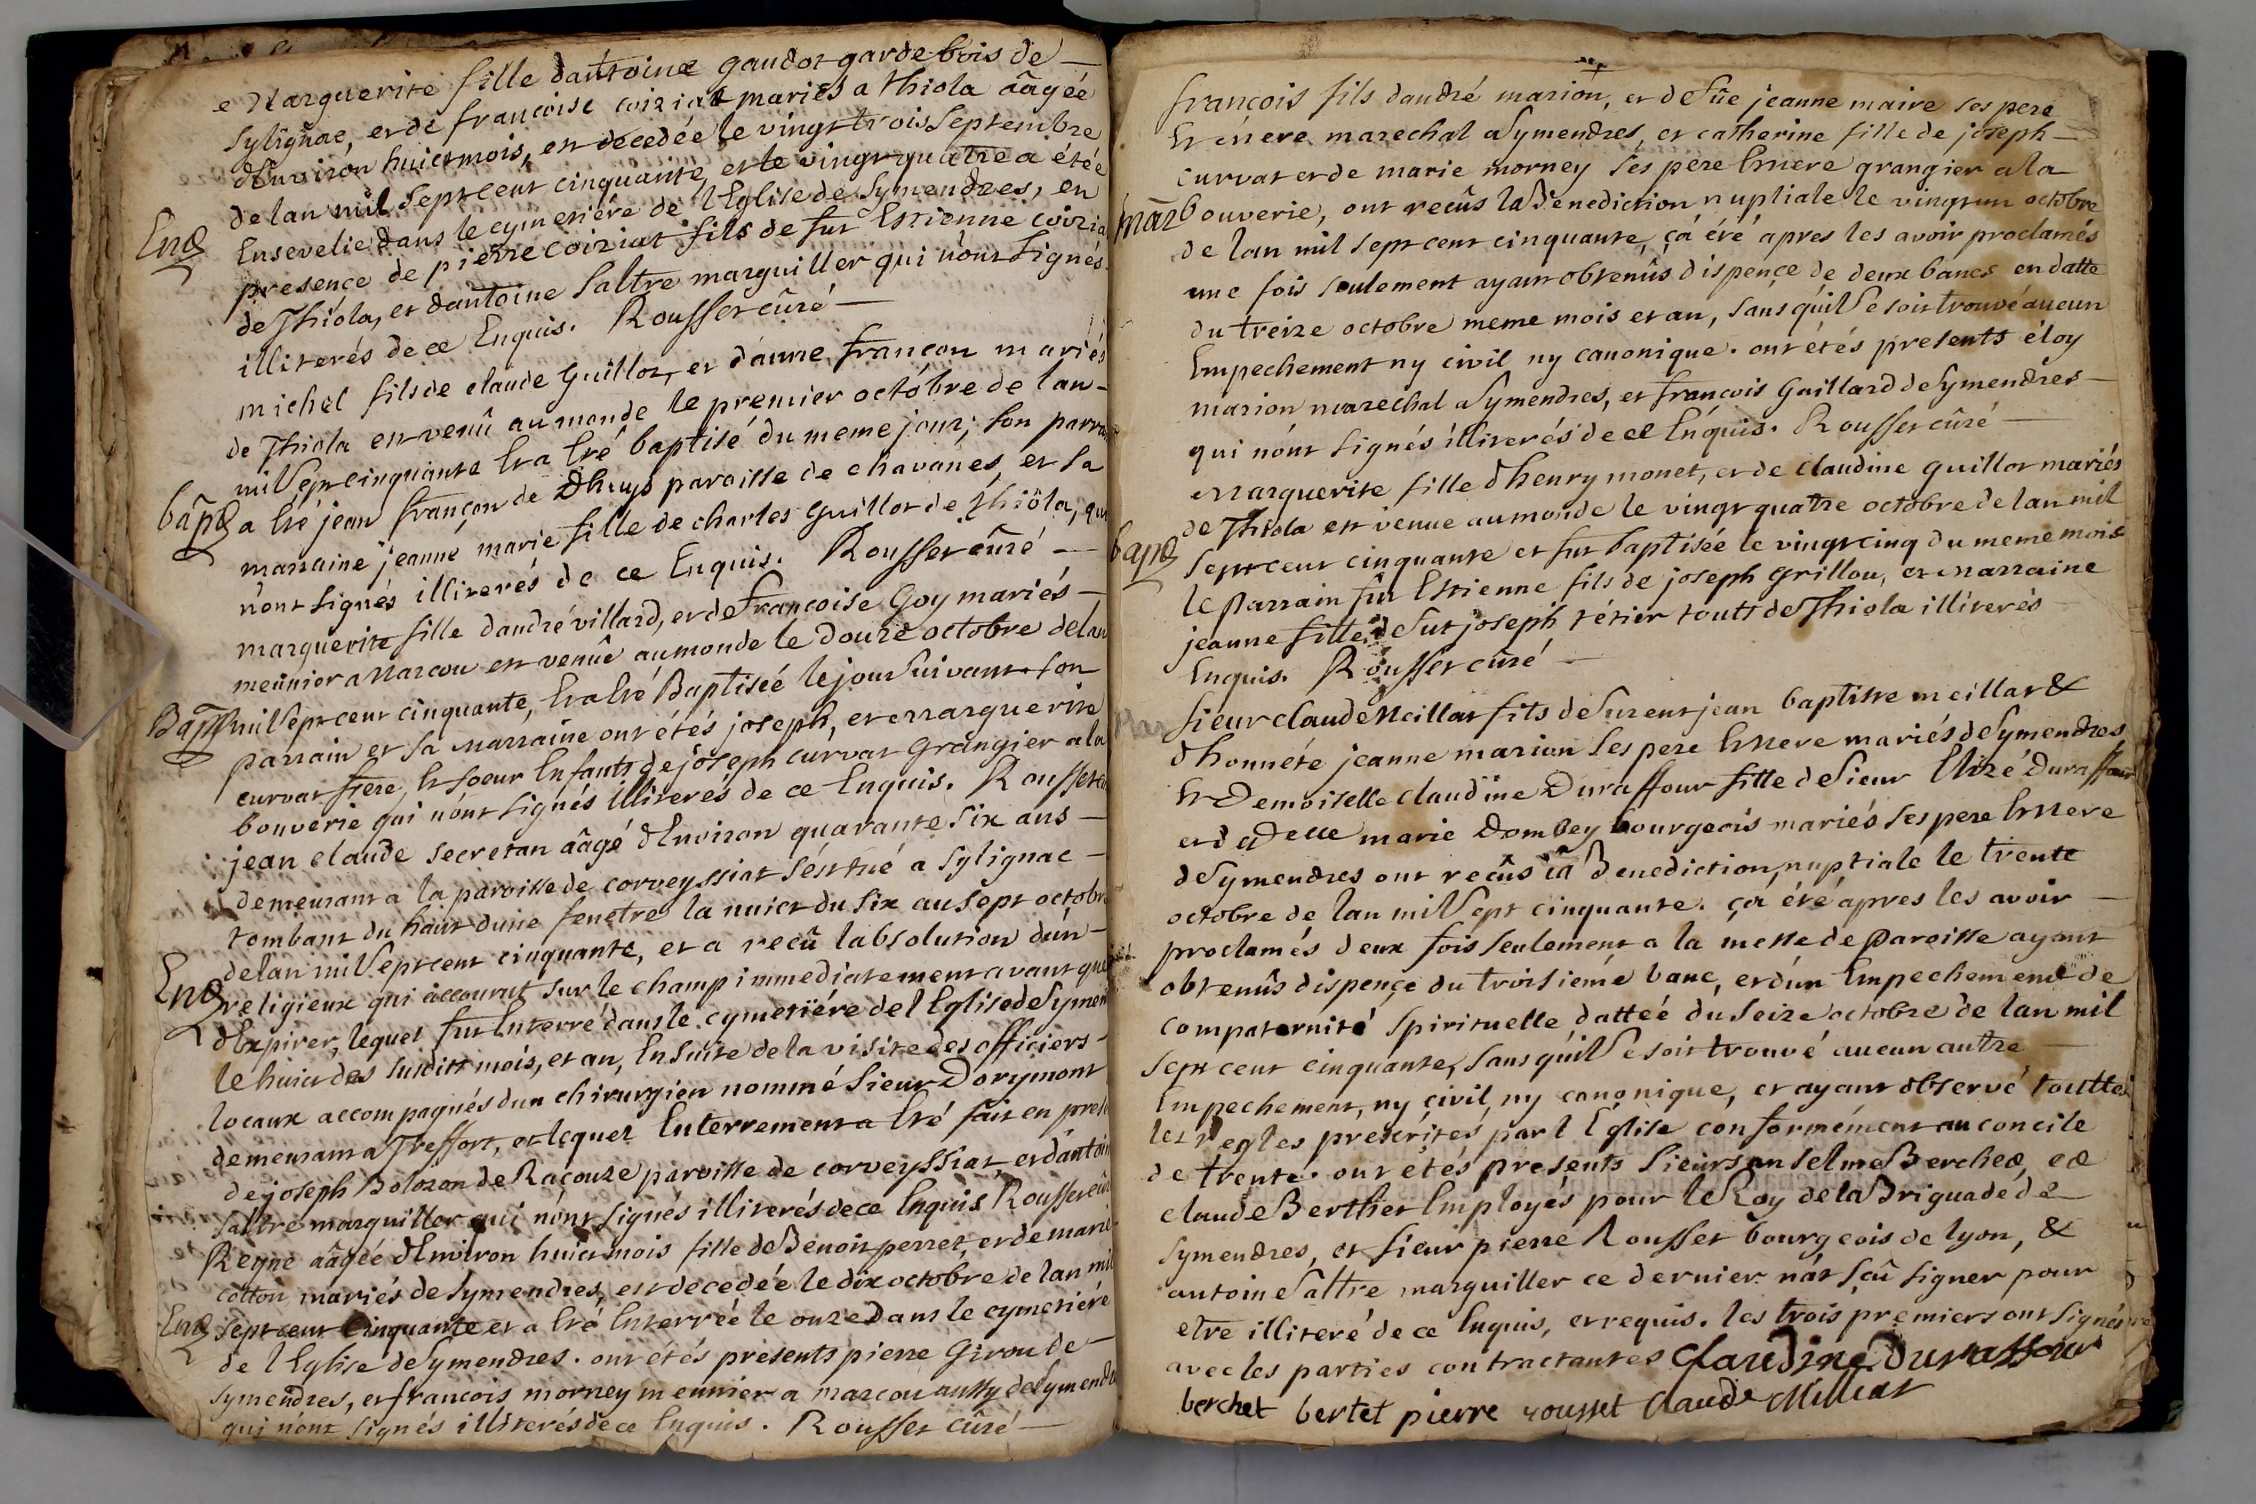 Marguerite fille dantoine gaudot garde bois de
Sylignac, et de francoise coiriat mariés a Thiola âagéé
dEnviron huict mois, est décedée le vingt trois Septembre
de lan mil Sept cent cinquante, et le vingt quatre a étéé
Ens Ensevelie dans le cymetiére de lEglise de Symendres, en
presence de pierre coiriat fils de fut Estienne coiria
de Thióla, et dantoine Saltre marguiller qui nont Signés
illiterés de ce Enquis. Rousset cûré
michel fils de claude Guillot, et dánne françon mariés
de Thiola est venû au monde le premier octóbre de lan
mil Sept cinquante Et a Eté baptisé du meme jour; Son parrai
bâpt a Eté jean françon de Dhuys paroisse de chavanes, et Sa
marraine jeanne marie fille de charles Guillot de thióla, qui
nont Signés illiterés de ce Enquis. Rousset cûré
marguerite fille dandré villard, et de Françoise Goy mariés
meûnier a Marcou est venûe au monde le douze octobre de lan
Bapt mil Sept cent cinquante, Et a Eté Baptiséé le jour Suivant Son
parrain et Sa marraine ont étés joseph, et marguerite
curvat frere, Et Soeur Enfants de joseph curvat Grangier a la
bouverie qui nónt Signés illiterés de ce Enquis. Rousset cû
jean claude secretan âagé dEnviron quarante Six ans
demeurant a la paroisse de corveyssiat Sést tué a Sylignac
tombant du haut dune fenetre la nuict du Six au Sept octobr
de lan mil Sept cent cinquante, et a recû labsolution dún
Ens religieux qui âccourut Sur le champ immediatement avant que
dExpirer, lequel fut Enterré dans le cymetiére de l Eglise de Symen
le huict des Susdits mois, et an, EnSuite de la visite des officiers
locaux accompagnés dun chirurgien nommé Sieur Dorymont
demeurant a Treffort, et lequel Enterrement a Eté fait en prese
de joseph Bolozon de Racouze paroisse de corveyssiat, et dantoin
Saltre marguiller qui nónt Signés illiterés de ce Enquis Rousset cûr
Reyne âagéé dEnviron huict mois fille de Benoit perret, et de marie
cotton mariés de Symendres, est decedéé le dix octobre de lan mil
Ens Sept cent Cinquante et a Eté Enterréé le onze Dans le cymetiére
de lEglise de Symendres. ont étés présents pierre Girou de
Symendres, et francois morney meunier a marcou aussy de Symendr
qui nónt Signés illiterés de ce Enquis. Rousset Cûré
francois fils dandré marion, et de fûe jeanne maire Ses pere
Et mere marechal a Symendres, et catherine fille de joseph
curvat et de marie morney Ses pere Et mere grangier a la
mar bouverie, ont recûs la Benediction nuptiale le vingt un octobre
de lan mil Sept cent cinquante, çá été apres les avoir proclamés
une fois Seulement ayant obtenûs dispençe de deux bancs en datte
du treize octobre meme mois et an, Sans quil Se Soit trouvé aucun
Empechement ny civil ny canonique. ont étés presents éloy
marion marechal a Symendres, et francois Gaillard de Symendres
qui nónt Signés illiterés de ce Enquis. Rousset cûré
Marguerite fille dhenry monet, et de claudine guillot mariés
de Thiola est venue au monde le vingt quatre octobre de lan mil
bapt Sept cent cinquante et fut Baptiséé le vingt cinq du meme mois
le Parrain fut Estienne fils de joseph Grillou, et marraine
jeanne fille de fut joseph tétier touts de Thiola illiterés
Enquis. Rousset cûré
Mar Sieur claude Meillat fils de Sieur jean baptiste meillat &
dhonnéte jeanne marion Ses pere Et Mere mariés de Symendres
Et Demoiselle claudine Duraffour fille de Sieur Elizé Duraffour
et de Delle marie Dombey bourgeois mariés Ses pere Et Mere
de Symendres ont recûs la Benediction nuptiale le trente
octobre de lan mil Sept cinquante. çá été apres les avoir
proclamés deux fois Seulement a la messe de Paroisse ayant
obtenûs dispençe du troisieme banc, et dún Empechement de
compaternité Spirituelle dattéé du Seize octobre de lan mil
Sept cent cinquante, Sans quil Se Soit trouvé aucun autre
Empechement, ny civil, ny canonique, et ayant observé touttes
les regles prescrites par l Eglise conformément au concile
de trente. ont étés presents Sieurs anselme Berchet, et
claude Berthet Employés pour le Roy de la Briguade de
Symendres, et Sieur pierre Rousset bourgeois de lyon, &
antoine Saltre marguiller ce dernier nát Sçû signer pour
etre illiteré de ce Enquis, et requis. les trois premiers ont Signés
avec les parties contractantes Claudine Duraffour
berchet bertet pierre rousset Claude Milliat